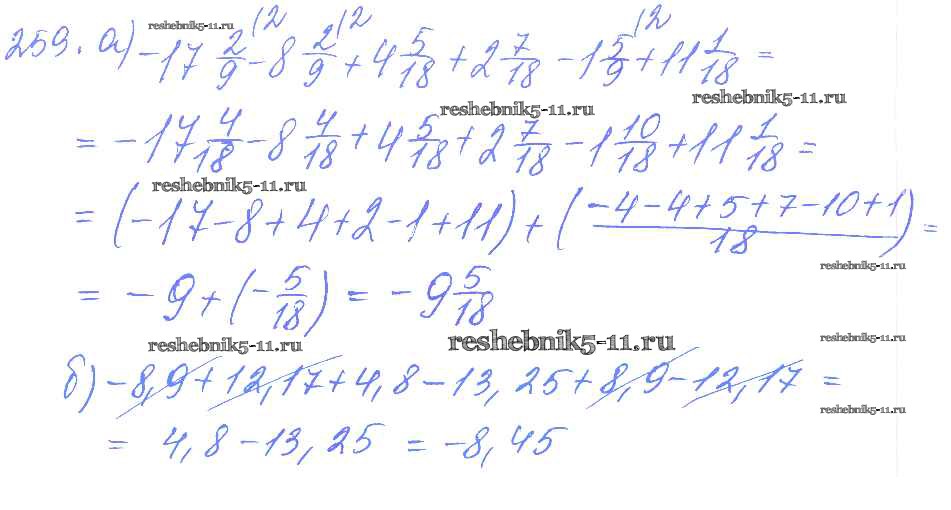 reshebnik5-11.ru
259. а) -17 2/9 (2 - 8 2/9 (2 + 4 5/18 + 2 7/18 - 1 5/9 (2 + 11 1/18 =
reshebnik5-11.ru
reshebnik5-11.ru
= -17 4/18 - 8 4/18 + 4 5/18 + 2 7/18 - 1 10/18 + 11 1/18 =
reshebnik5-11.ru
= (-17-8+4+2-1+11) + (-4-4+5+7-10+1 / 18) =
reshebnik5-11.ru
= -9 + (-5/18) = -9 5/18
reshebnik5-11.ru
reshebnik5-11.ru
reshebnik5-11.ru
б) -8,9+12,17+4,8-13,25+8,9-12,17 =
reshebnik5-11.ru
= 4,8-13,25 = -8,45